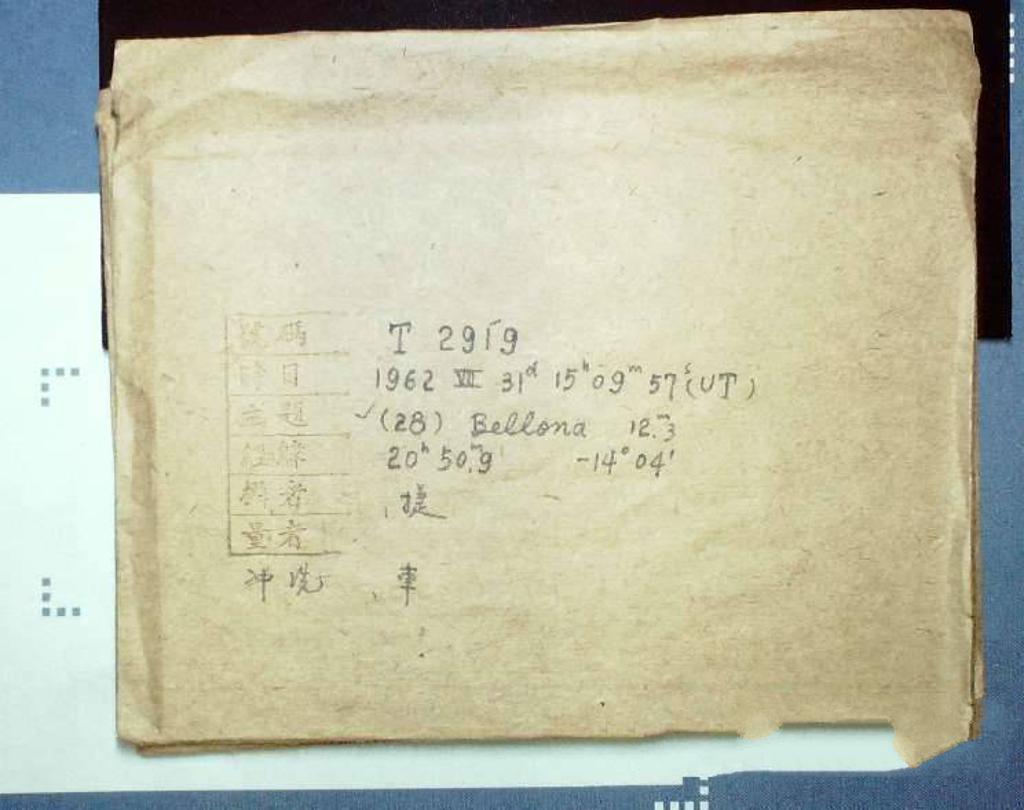 號碼 T 2919
時日 1962 VII 31ᵈ 15ʰ 09ᵐ 57ˢ (UT)
主題 ✓(28) Bellona 12.ᵐ3
經緯 20ʰ 50.ᵐ9 -14°04'
者 捷
量者
冲洗 車